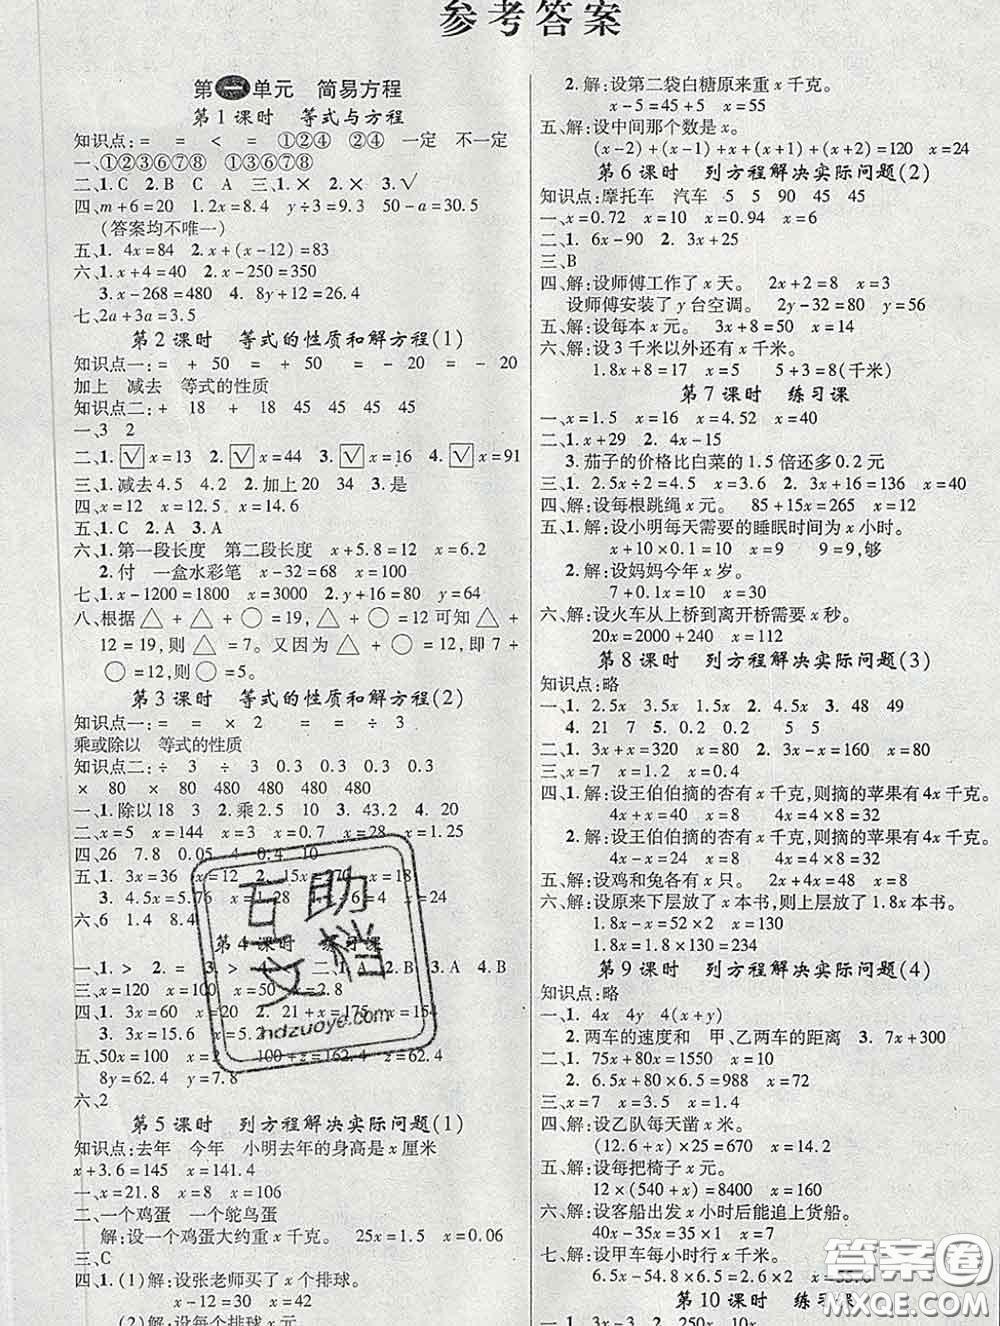 参考答案
第一单元　简易方程
第 1 课时　等式与方程
知识点:=　=　<　=　①②④　②④　一定　不一定
一、①②③⑥⑦⑧　①③⑥⑦⑧
二、1. C　2. B　C　A　三、1. ×　2. ×　3. √
四、m+6=20　1.2x=8.4　y÷3=9.3　50-a=30.5
(答案均不唯一)
五、1. 4x=84　2. x+(x-12)=83
六、1. x+4=40　2. x-250=350
3. x-268=480　4. 8y+12=26.4
七、2a+3a=3.5
第 2 课时　等式的性质和解方程(1)
知识点一:=　+　50　=　=　+　50　=　=　-　20　=　=　-　20
加上　减去　等式的性质
知识点二:+　18　+　18　45　45　45　45
一、3　2
二、1. √ x=13　2. √ x=44　3. √ x=16　4. √ x=91
三、1. 减去4.5　4.2　2. 加上20　34　3. 是
四、x=12　x=12.5　x=14.6
五、1. C　2. A　3. A
六、1. 第一段长度　第二段长度　x+5.8=12　x=6.2
2. 付　一盒水彩笔　x-32=68　x=100
七、1. x-1200=1800　x=3000　2. y+16=80　y=64
八、根据△+△+○=19,△+○=12 可知△+
12=19,则△=7。又因为△+○=12,即 7+
○=12,则○=5。
第 3 课时　等式的性质和解方程(2)
知识点一:=　=　×　2　=　=　÷　3
乘或除以　等式的性质
知识点二:÷　3　÷　3　0.3　0.3　0.3　0.3
×　80　×　80　480　480　480　480
一、1. 除以18　3　2. 乘2.5　10　3. 43.2　4. 8
二、x=5　x=144　x=3　x=0.7　x=28　x=1.25
四、26　7.8　0.05　4　0.4　10
五、1. 3x=36　x=12　2. 15x=270　x=18
3. 4.5x=5.76　x=1.28
六、6　1.4　8.4
第 4 课时　练习课
一、1. >　2. =　3. >　二、1. A　2. B　3. A　4. B
三、x=120　x=100　x=50　x=2.8
四、1. 3x=60　x=20　2. 21+x=175　x=154
3. 3x=15.6　x=5.2
五、50x=100　x=2　100+z=162.4　z=62.4
8y=62.4　y=7.8
六、2
第 5 课时　列方程解决实际问题(1)
知识点:去年　今年　小明去年的身高是 x 厘米
x+3.6=145　x=141.4
一、x=21.8　x=8　x=106
二、一个鸡蛋　一个鸵鸟蛋
解:设一个鸡蛋大约重 x 千克。　25x=1.5　x=0.06
三、C
四、1. (1)解:设张老师买了 x 个排球。
x-12=30　x=42
2. 解:设第二袋白糖原来重 x 千克。
x-5=45+5　x=55
五、解:设中间那个数是 x。
(x-2)+(x-1)+x+(x+1)+(x+2)=120　x=24
第 6 课时　列方程解决实际问题(2)
知识点:摩托车　汽车　5　5　90　45　45
一、x=0.72　x=10　x=0.94　x=6
二、1. 6x-90　2. 3x+25
三、B
四、解:设师傅工作了 x 天。　2x+2=8　x=3
设师傅安装了 y 台空调。　2y-32=80　y=56
五、解:设每本 x 元。　3x+8=50　x=14
六、解:设 3 千米以外还有 x 千米。
1.8x+8=17　x=5　5+3=8(千米)
第 7 课时　练习课
一、x=1.5　x=16　x=4.52　x=40
二、1. x+29　2. 4x-15
3. 茄子的价格比白菜的 1.5 倍还多 0.2 元
三、1. 2.5x÷2=4.5　x=3.6　2. 3x+16=136　x=40
四、解:设每根跳绳 x 元。　85+15x=265　x=12
五、1. 解:设小明每天需要的睡眠时间为 x 小时。
x+10×0.1=10　x=9　9=9,够
2. 解:设妈妈今年 x 岁。
7+0.1x=10　x=30
六、解:设火车从上桥到离开桥需要 x 秒。
20x=2000+240　x=112
第 8 课时　列方程解决实际问题(3)
知识点:略
一、1. 2.5x　3.5x　1.5x　2. 4.5x　3. 48　49
4. 21　7　5. 0.2　0.2　5　5
二、1. 3x+x=320　x=80　2. 3x-x=160　x=80
三、x=7　x=1.2　x=0.4
四、1. 解:设王伯伯摘的杏有 x 千克,则摘的苹果有 4x 千克。
4x+x=40　x=8　4x=4×8=32
2. 解:设王伯伯摘的杏有 x 千克,则摘的苹果有 4x 千克。
4x-x=24　x=8　4x=4×8=32
五、解:设鸡和兔各有 x 只。　2x+4x=48　x=8
六、解:设原来下层放了 x 本书,则上层放了 1.8x 本书。
1.8x-x=52×2　x=130
1.8x=1.8×130=234
第 9 课时　列方程解决实际问题(4)
知识点:略
一、1. 4x　4y　4(x+y)
2. 两车的速度和　甲、乙两车的距离　3. 7x+300
二、1. 75x+80x=1550　x=10
2. 6.5x+80×6.5=988　x=72
三、x=9　x=3　x=1.4
四、解:设乙队每天凿 x 米。
(12.6+x)×25=670　x=14.2
五、解:设每把椅子 x 元。
12×(540+x)=8400　x=160
六、解:设客船出发 x 小时后能追上货船。
40x-35x=35×2　x=14
七、解:设甲车每小时行 x 千米。
第 10 课时　练习课
互助文档
hdzuoye.com
答案圈
MXQE.COM